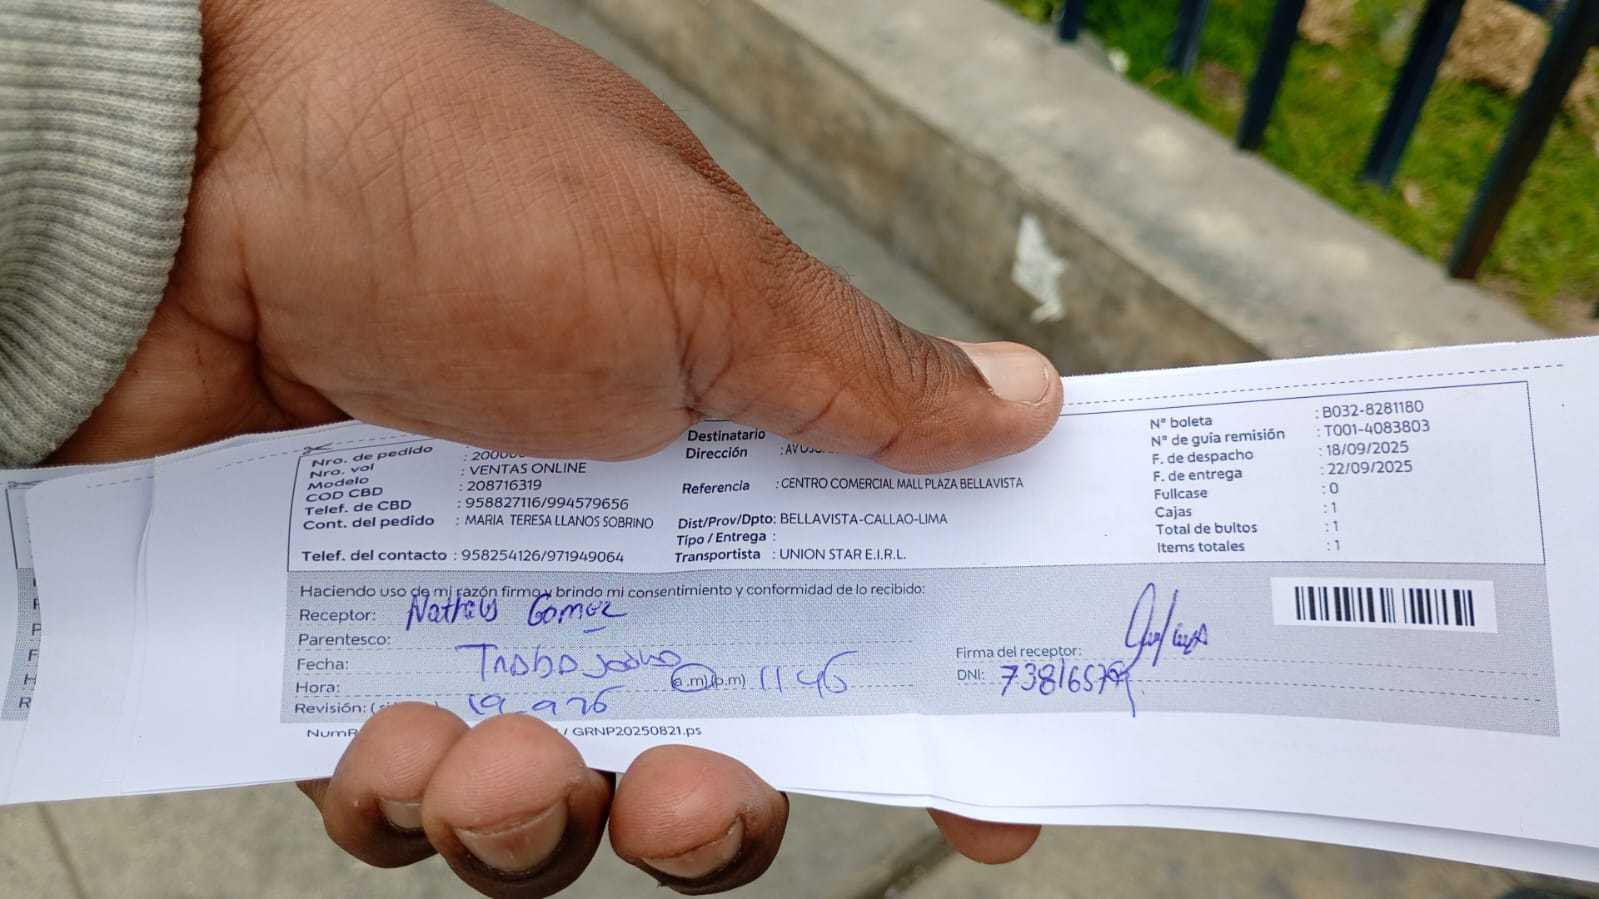 Nro. de pedido : 20000
Nro. vol : VENTAS ONLINE
Modelo : 208716319
COD CBD : 958827116/994579656
Telef. de CBD : MARIA TERESA LLANOS SOBRINO
Cont. del pedido
Telef. del contacto : 958254126/971949064
Destinatario
Dirección
Referencia : CENTRO COMERCIAL MALL PLAZA BELLAVISTA
Dist/Prov/Dpto: BELLAVISTA-CALLAO-LIMA
Tipo / Entrega :
Transportista : UNION STAR E.I.R.L.
N° boleta : B032-8281180
N° de guía remisión : T001-4083803
F. de despacho : 18/09/2025
F. de entrega : 22/09/2025
Fullcase : 0
Cajas : 1
Total de bultos : 1
Items totales : 1
Haciendo uso de mi razón firmo y brindo mi consentimiento y conformidad de lo recibido:
Receptor: Gomez
Parentesco:
Fecha:
Hora: (a.m)(p.m) 11 45
Revisión: (
Firma del receptor:
DNI:
/ GRNP20250821.ps